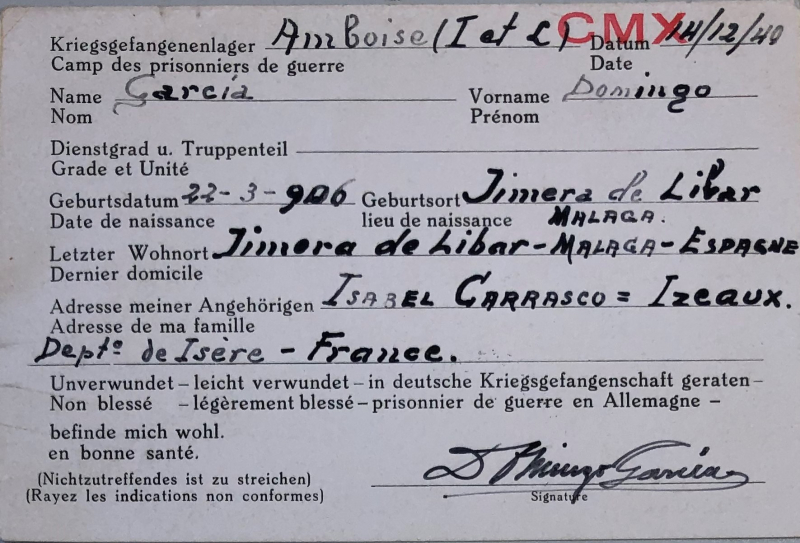 Kriegsgefangenenlager Amboise (I et L) CMX Datum 14/12/40
Camp des prisonniers de guerre Date
Name García Vorname Domingo
Nom Prénom
Dienstgrad u. Truppenteil
Grade et Unité
Geburtsdatum 22-3-906 Geburtsort Jimera de Libar
Date de naissance lieu de naissance MALAGA.
Letzter Wohnort Jimera de Libar-MALAGA-ESPAGNE
Dernier domicile
Adresse meiner Angehörigen ISABEL CARRASCO = Izeaux.
Adresse de ma famille
Deptº de Isère - France.
Unverwundet – leicht verwundet – in deutsche Kriegsgefangenschaft geraten –
Non blessé – légèrement blessé – prisonnier de guerre en Allemagne –
befinde mich wohl.
en bonne santé.
(Nichtzutreffendes ist zu streichen)
(Rayez les indications non conformes)
Domingo García
Signature